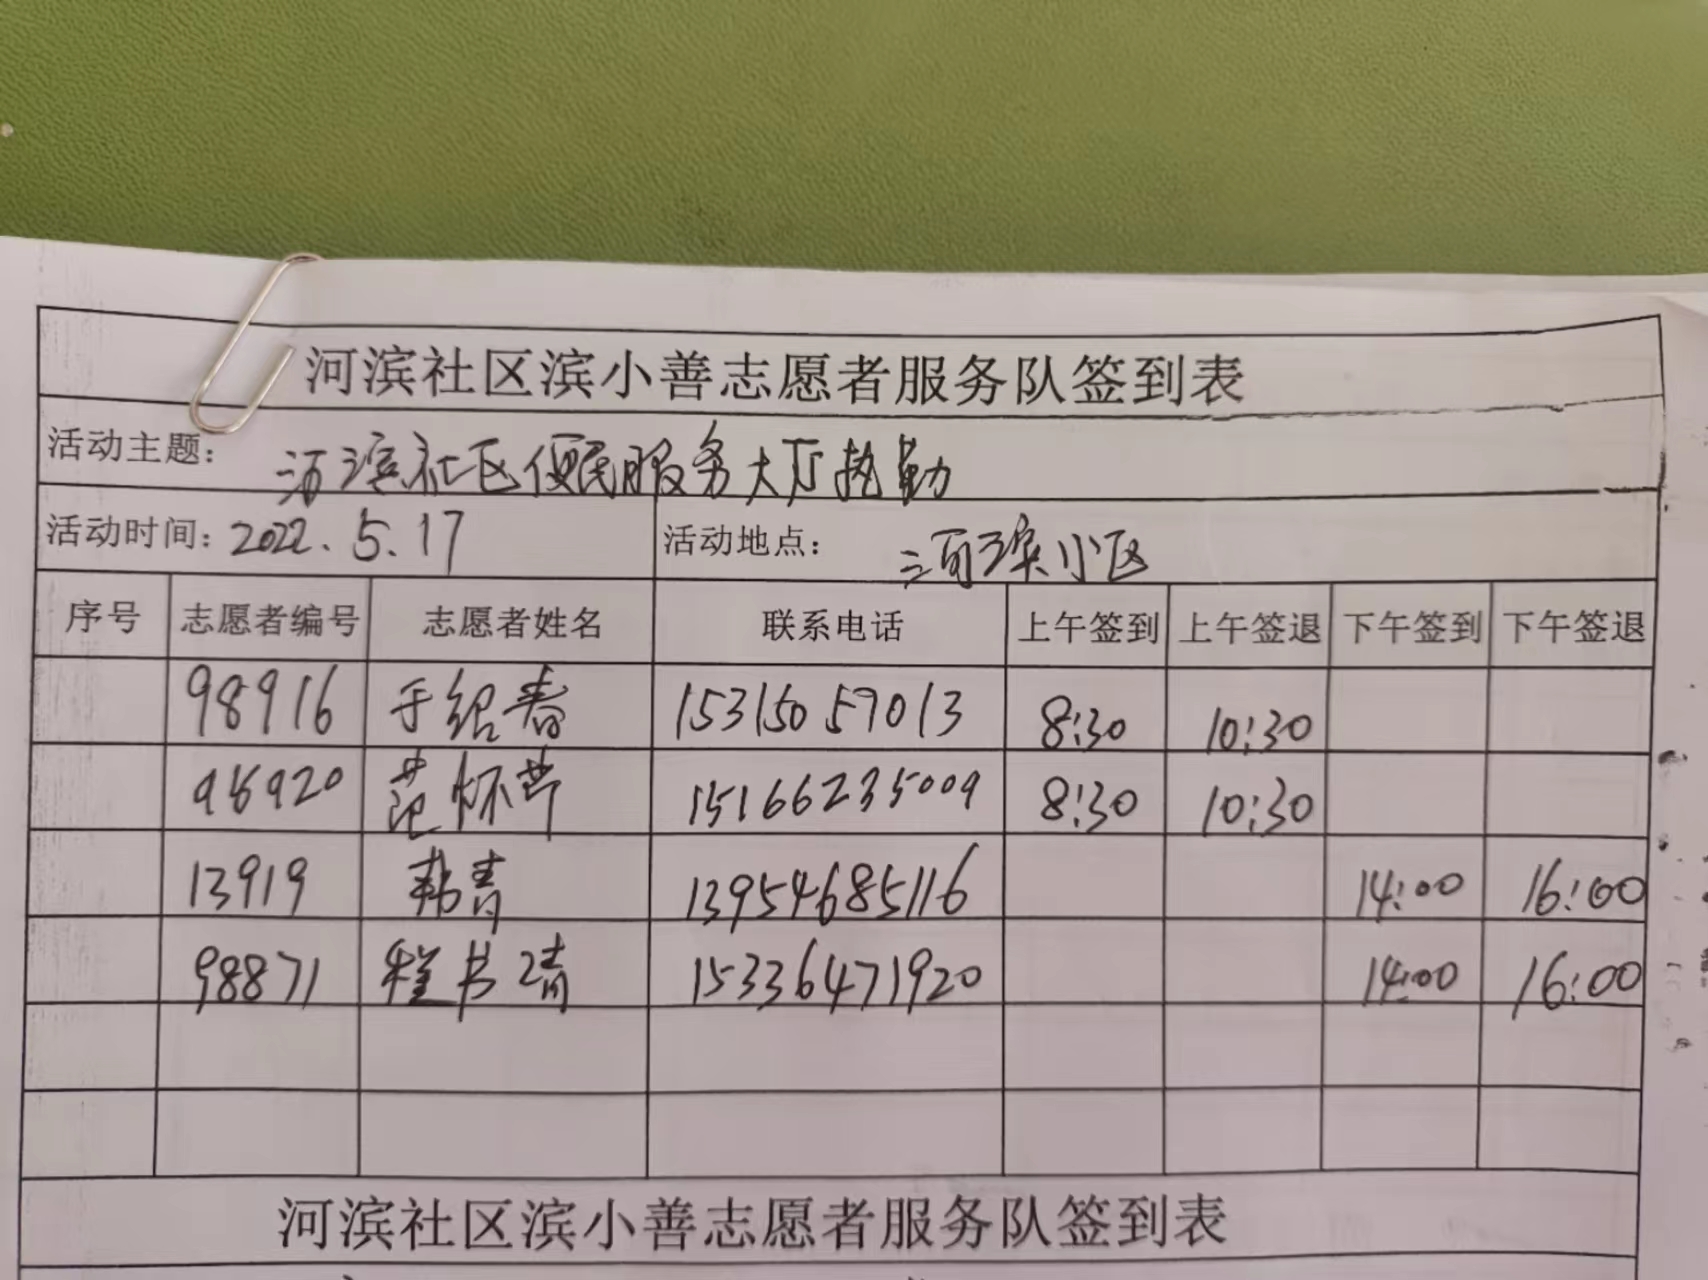 河滨社区滨小善志愿者服务队签到表
活动主题： 河滨社区便民服务大厅执勤
活动时间：2022.5.17 活动地点： 河滨小区
序号 志愿者编号 志愿者姓名 联系电话 上午签到 上午签退 下午签到 下午签退
98916 于绍春 15315057013 8:30 10:30
98920 范怀芹 15166235009 8:30 10:30
13919 韩青 13954685116 14:00 16:00
98871 程书靖 15336471920 14:00 16:00
河滨社区滨小善志愿者服务队签到表